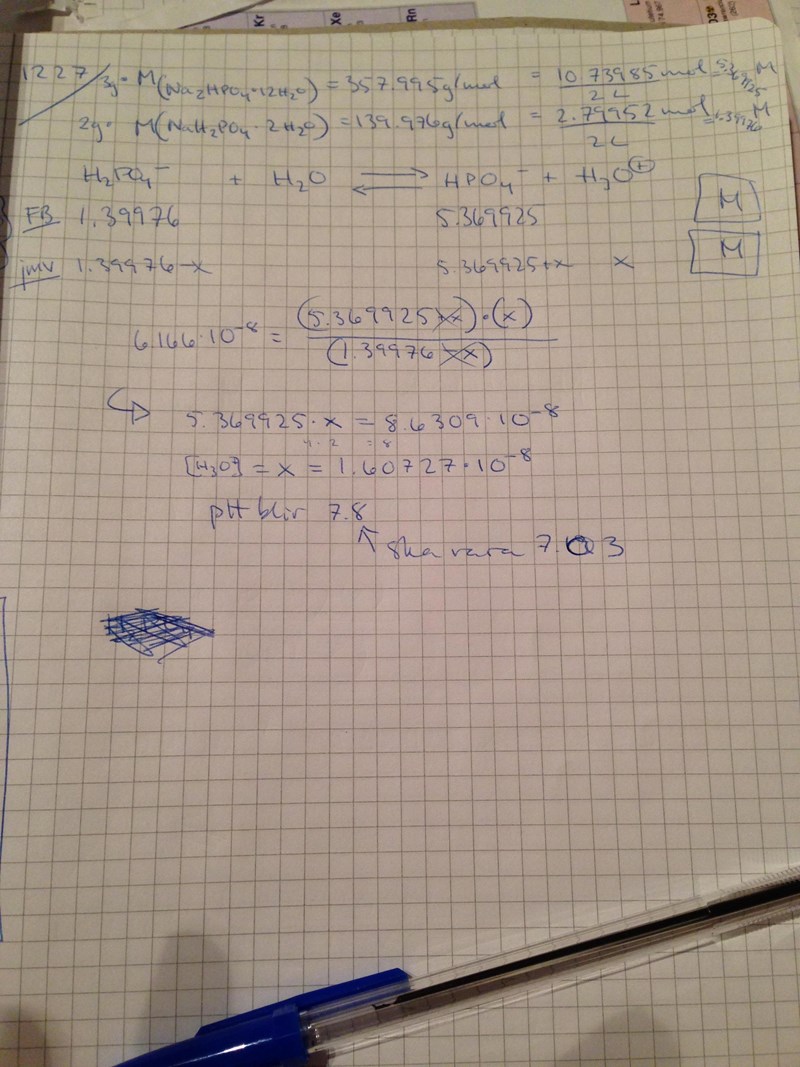 Kr Xe Rn
1227 3g · M(Na₂HPO₄·12H₂O) = 357.995g/mol = 10.73985 mol / 2L = M
2g · M(NaH₂PO₄·2H₂O) = 139.976g/mol = 2.79952 mol / 2L = 1.39976 M
H₂PO₄⁻ + H₂O ⇌ HPO₄⁻ + H₃O⊕ M
FB 1.39976 5.369925
jmv 1.39976-x 5.369925+x x M
6.166·10⁻⁸ = (5.369925+x)·(x) / (1.39976-x)
↪ 5.369925·x = 8.6309·10⁻⁸
4·2 = 8
[H₃O] = x = 1.60727·10⁻⁸
pH blir 7.8
↑ ska vara 7.03